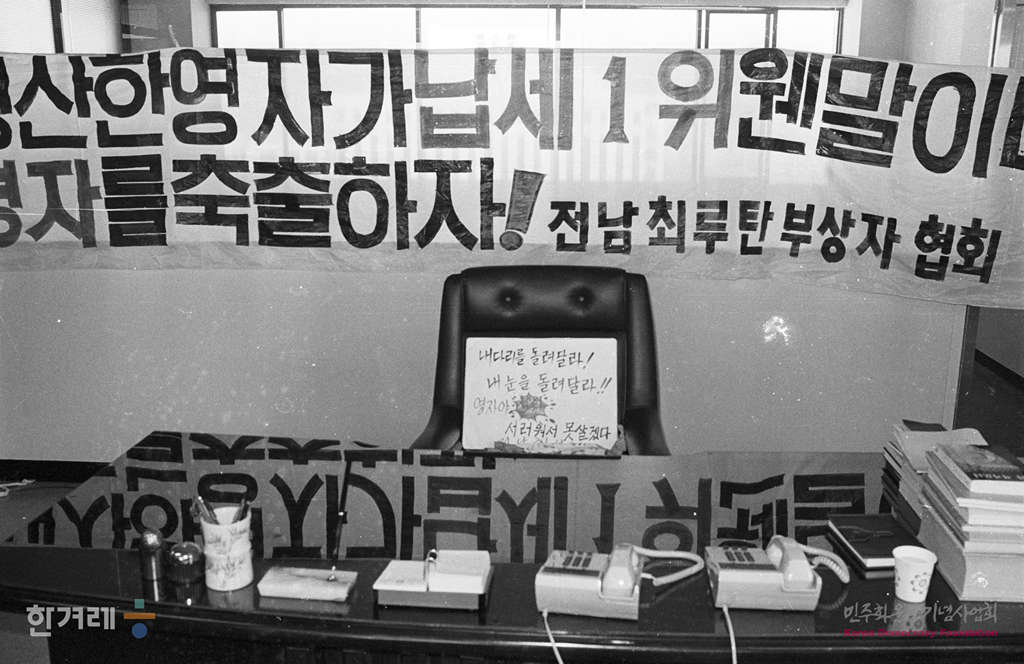 산한영자가납세1위웬말이냐
영자를축출하자! 전남최루탄부상자 협회
내다리를 돌려달라!
내 눈을 돌려달라!!
영자야
서러워서 못살겠다
한겨레
민주화운동기념사업회